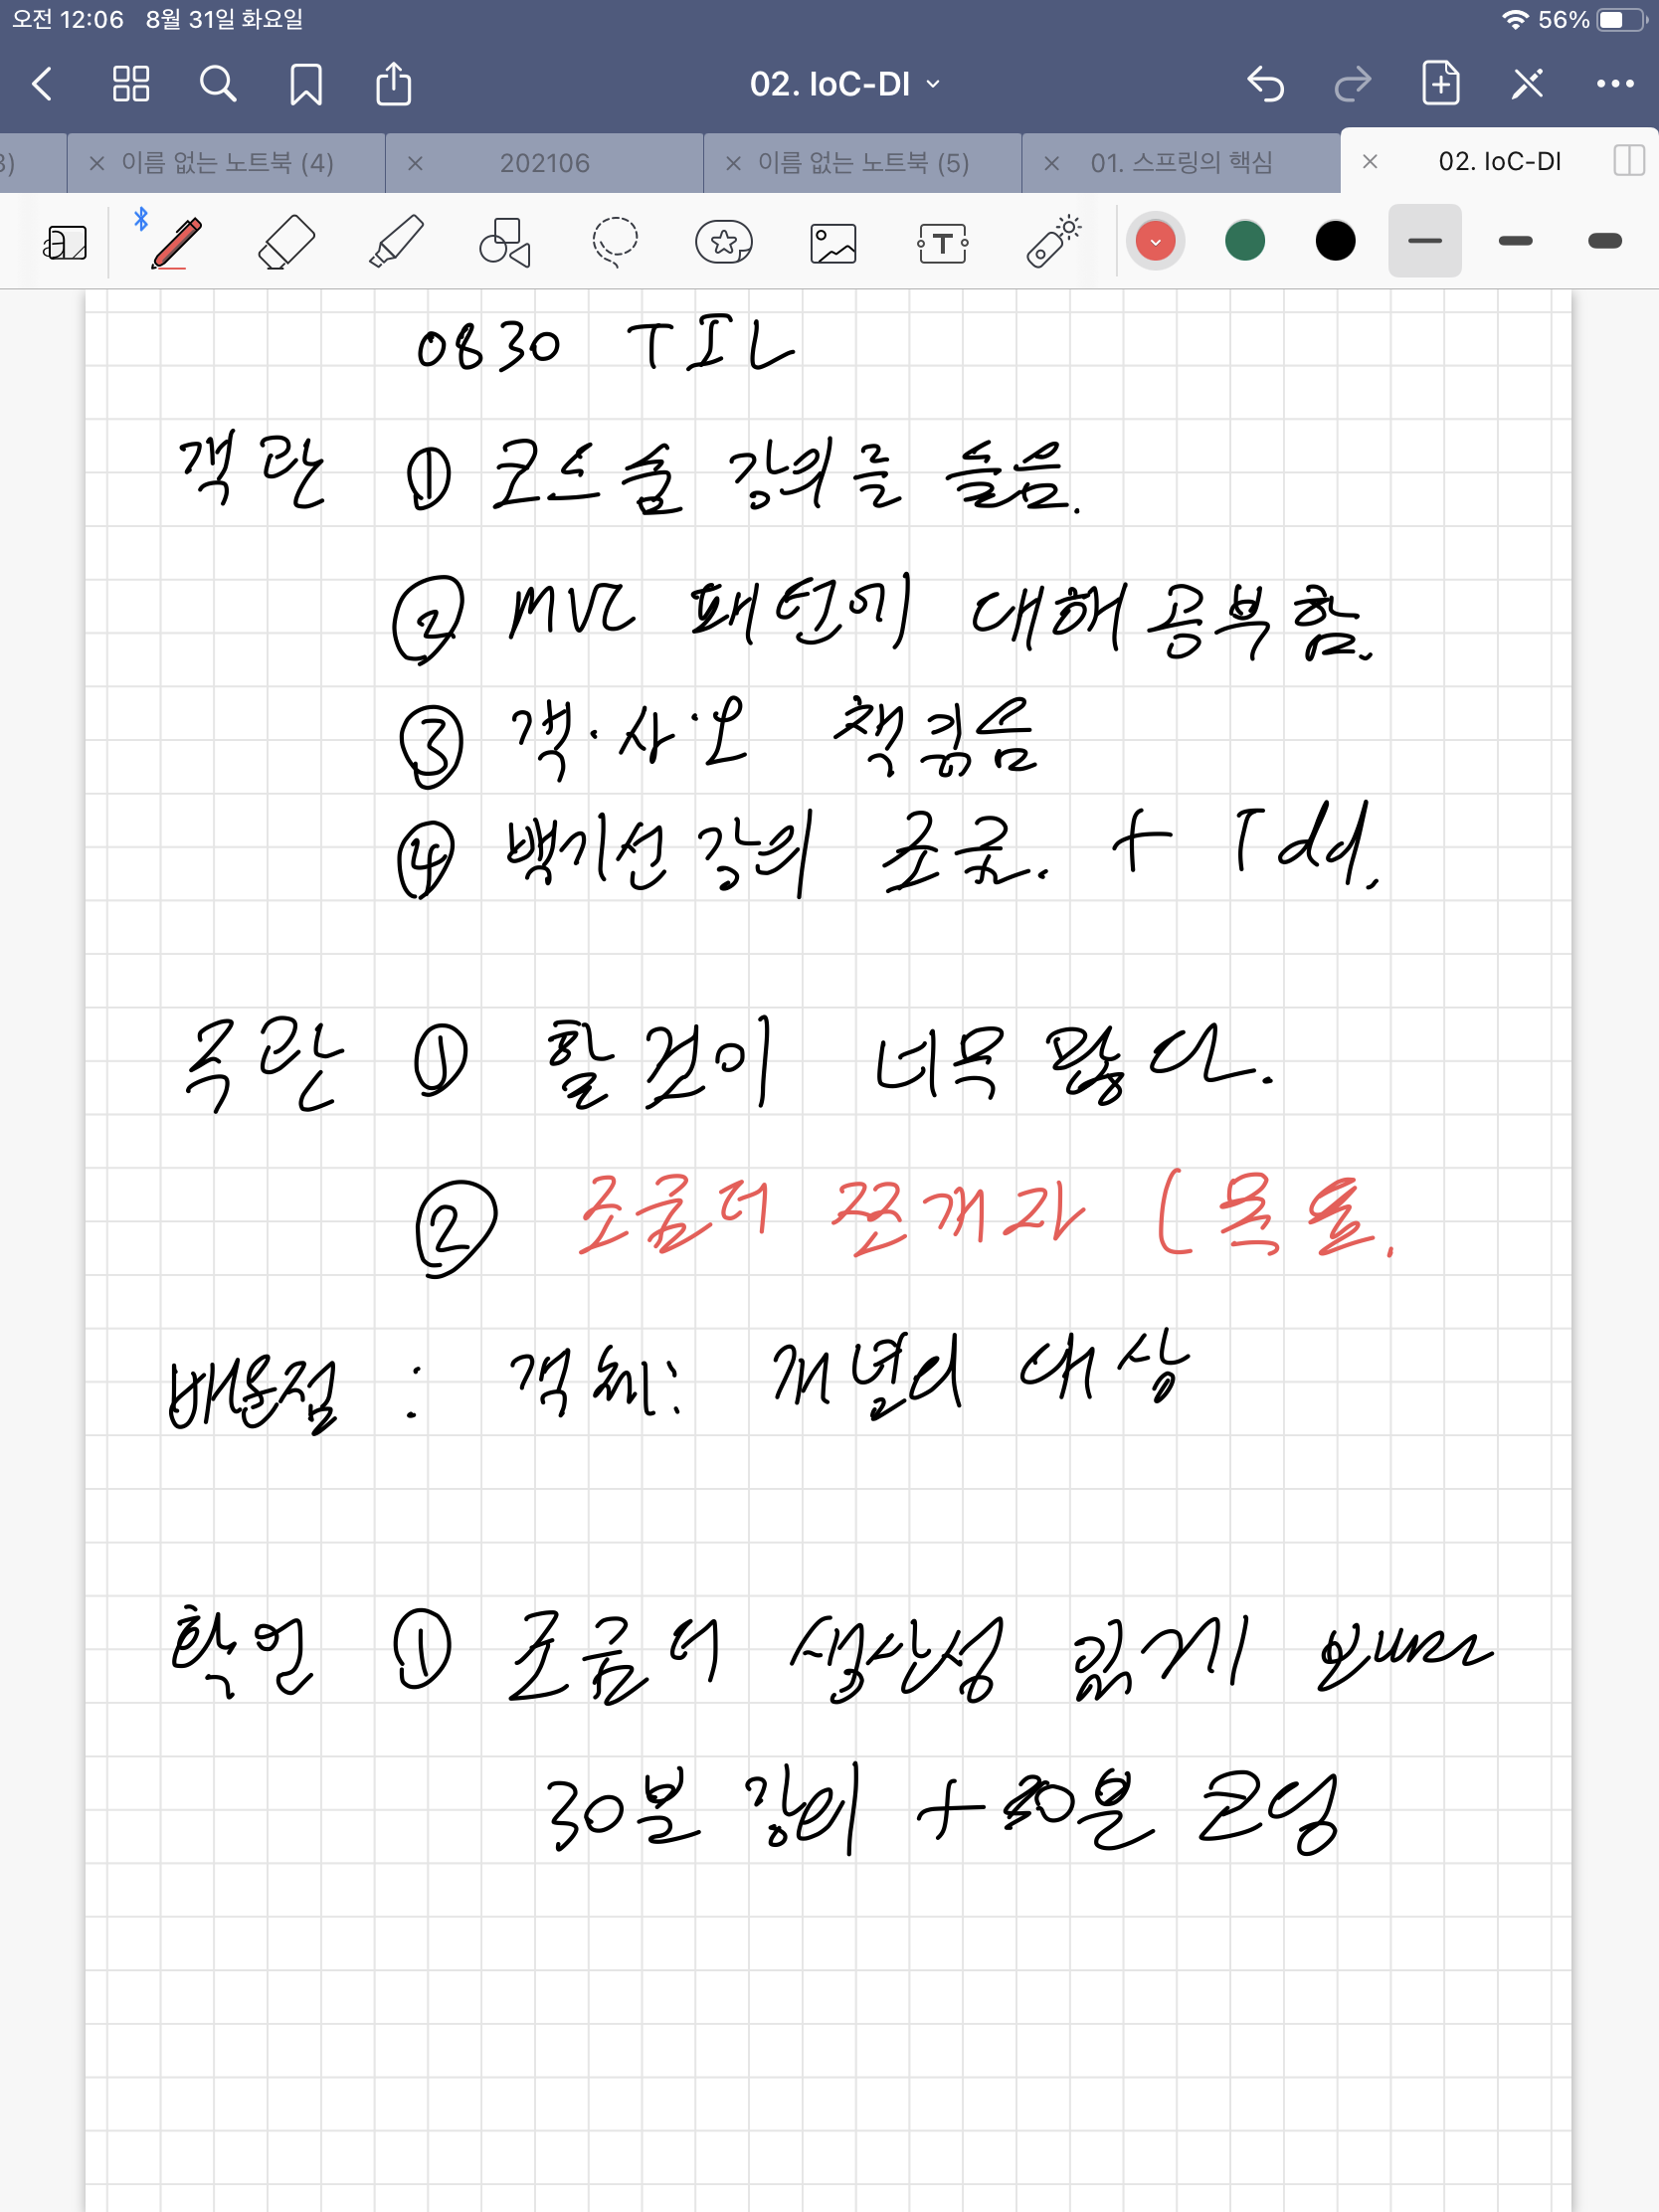 오전 12:06 8월 31일 화요일 56%
02. IoC-DI
3) 이름 없는 노트북 (4) 202106 이름 없는 노트북 (5) 01. 스프링의 핵심 02. IoC-DI
0830 TIL
객관 ① 코드숨 강의를 들음.
② MVC 패턴에 대해 공부함.
③ 객·사·오 책읽음
④ 백기선 강의 조금. + Tdd.
주관 ① 할것이 너무 많다.
② 조금더 쪼개자
배운점 : 객체: 개념의 대상
확언 ① 조금더 생산성 있게
30분 강의 + 30분 코딩